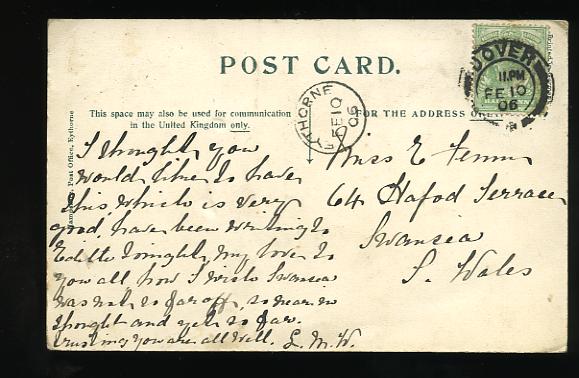 POST CARD.
This space may also be used for communication
in the United Kingdom only.
FOR THE ADDRESS
DOVER
11.PM
FE 10
06
EYTHORNE
FE 10
06
Post Office, Eythorne
I thought you
would like to have
this, which is very
good, have been writing to
Edith tonight, my love to
you all, how I wish Swansea
was not so far off, so near in
thought and yet so far.
trusting you are all well. L. M. W.
Miss E
64 Hafod Terrace
Swansea
S. Wales